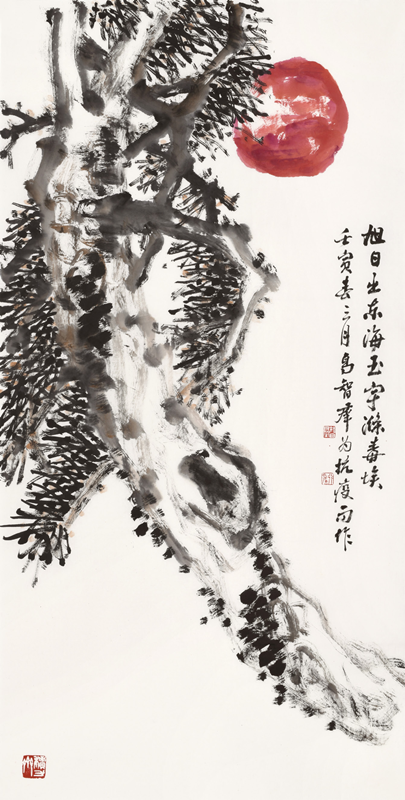 旭日出东海玉宇涤毒埃
壬寅春三月昌智军为抗疫而作